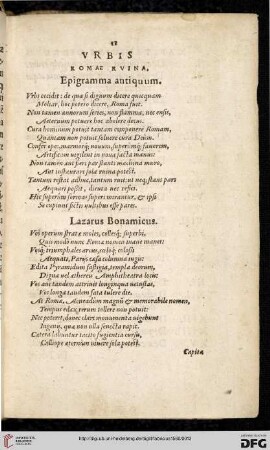 VRBIS
ROMAE RVINA.
Epigramma antiquum.
Vrbs cecidit: de qua si dignum dicere quicquam
Moliar, hoc potero dicere, Roma fuit.
Non tamen annorum series, non flamma, nec ensis,
Aeternum potuere hoc abolere decus.
Cura hominum potuit tantam componere Romam,
Quantam non potuit soluere cura Deûm.
Confer opes, marmorq;, nouum, superûmq; fauorem,
Artificum vigilent in noua facta manus:
Non tamen aut fieri par stanti machina muro,
Aut instaurari sola ruina potest.
Tantum restat adhuc, tantum ruit: ut neq; stans pars
Aequari possit, diruta nec refici.
Hic superûm formas superi mirantur, & ipsi
Se cupiunt fictis uultibus esse pares.
Lazarus Bonamicus.
Vos operum stratae moles, collesq; superbi,
Queis modò nunc Romae nomen inane manet:
Vosq; triumphales arcus, coeloq; colossi
Aequati, Parijs caesa columna iugis:
Edita Pyramidum fastigia, templa deorum,
Digna vel aethereis Amphitheatra locis:
Vos aeui tandem attriuit longinqua uetustas,
Vos longa tandem fata tulere die.
At Romae, Aeneadûm magnũ & memorabile nomen,
Tempus edax rerum tollere non potuit:
Nec poterit, donec clari monumenta uigebunt
Ingenij, quae non ulla senecta rapit.
Caetera labuntur tacito fugientia cursu,
Calliope aeternùm uiuere sola potest.
Capita
DFG